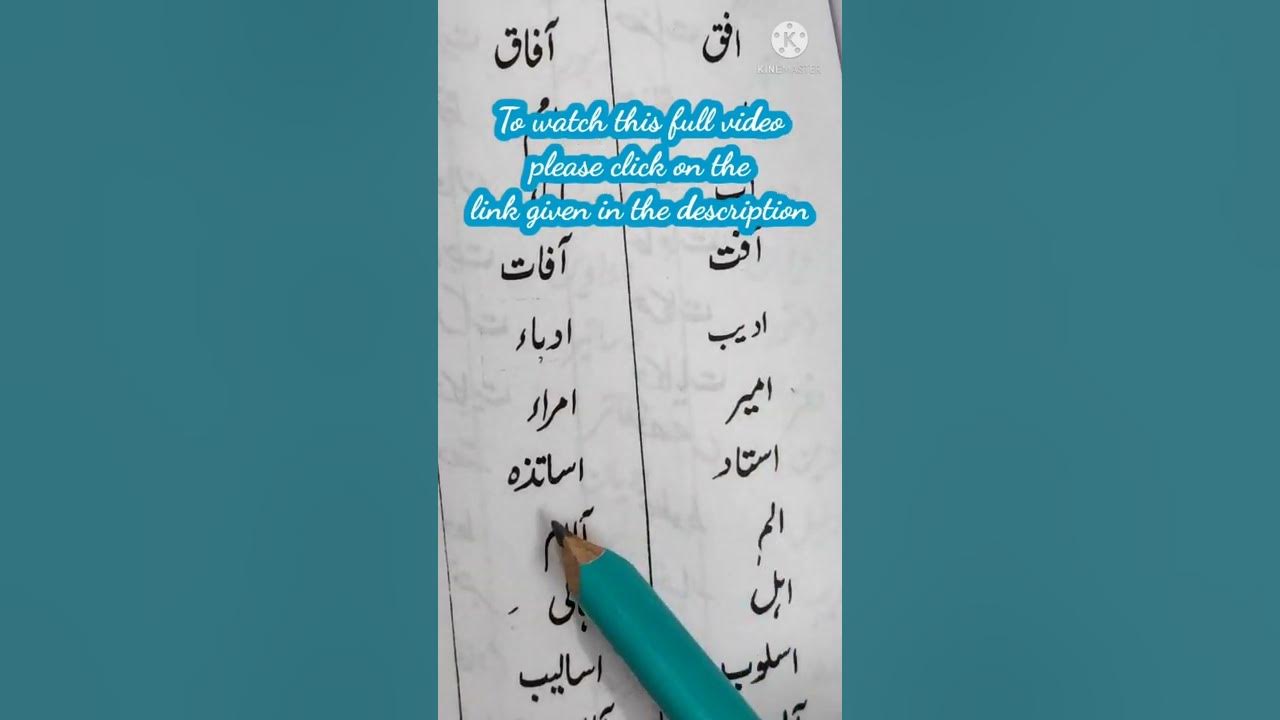 افق آفاق
KINEMASTER
To watch this full video
please click on the
link given in the description
آفت آفات
ادیب ادباء
امیر امراء
استاد اساتذہ
الم
اہل
اسلوب اسالیب